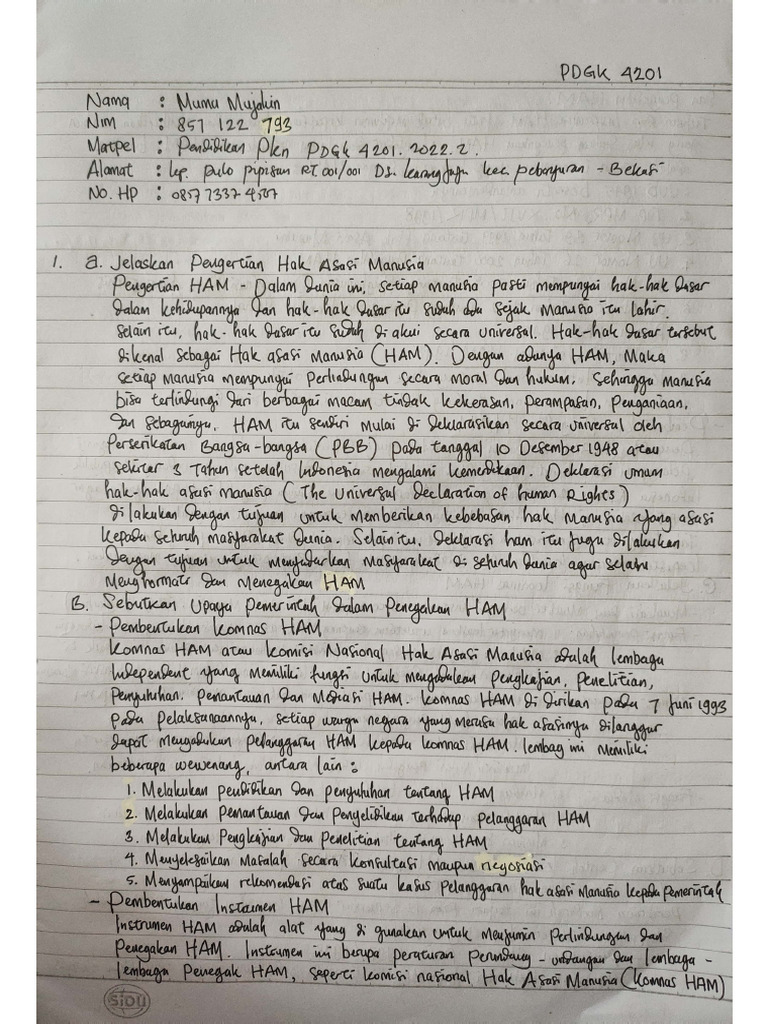 PDGK 4201
Nama : Mumu Mujahin
Nim : 857 122 793
Matpel : Pendidikan Pkn PDGK 4201. 2022.2.
Alamat : kp. pulo pipisan RT 001/001 Ds. karanghaja kec. pebayuran - Bekasi
No. HP : 0857 7337 4507
1. a. Jelaskan Pengertian Hak Asasi Manusia
Pengertian HAM - Dalam Dunia ini, setiap manusia pasti mempungai hak-hak dasar
dalam kehidupannya dan hak-hak dasar itu sudah ada sejak Manusia itu lahir.
selain itu, hak-hak dasar itu sudah di akui secara universal. Hak-hak dasar tersebut
dikenal sebagai Hak asasi Manusia (HAM). Dengan adanya HAM, Maka
setiap Manusia mempungai Perlindungan secara moral dan hukum. Sehingga manusia
bisa terlindungi dari berbagai macam tindak kekerasan, perampasan, penganiaan,
dan sebagainya. HAM itu sendiri mulai di deklarasikan secara universal oleh
Perserikatan Bangsa-bangsa (PBB) pada tanggal 10 Desember 1948 atau
sekitar 3 Tahun setelah Indonesia mengalami kemerdekaan. Deklarasi umum
hak-hak asasi manusia (The Universal Declaration of human Rights)
di lakukan dengan tujuan untuk memberikan kebebasan hak Manusia yang asasi
kepada seluruh masyarakat dunia. Selain itu, deklarasi ham itu juga dilakukan
dengan tujuan untuk menyadarkan Masyarakat di seluruh dunia agar selalu
Menghormati dan Menegakan HAM
B. Sebutkan Upaya Pemerintah dalam Penegakan HAM
- Pembentukan Komnas HAM
Komnas HAM atau Komisi Nasional Hak Asasi Manusia adalah lembaga
Independent yang memiliki fungsi untuk mengadakan Pengkajian, Penelitian,
Penyuluhan. pemantauan dan Mediasi HAM. Komnas HAM di dirikan pada 7 Juni 1993
pada pelaksanaannya, setiap warga negara yang merasa hak asasinya dilanggar
dapat mengadukan pelanggaran HAM kepada komnas HAM. lembag ini memiliki
beberapa wewenang, antara lain :
1. Melakukan pendidikan dan penyuluhan tentang HAM
2. Melakukan Pemantauan dan Penyelidikan terhadap pelanggaran HAM
3. Melakukan Pengkajian dan penelitian tentang HAM
4. Menyelesaikan Masalah secara konsultasi maupun negosiasi
5. Menyampaikan rekomendasi atas suatu kasus pelanggaran hak asasi Manusia kepada pemerintah
- Pembentukan Instrumen HAM
Instrumen HAM adalah alat yang di gunakan untuk menjamin perlindungan dan
Penegakan HAM. Instrumen ini berupa peraturan Perundang - undangan dan lembaga -
lembaga Penegak HAM, seperti komisi nasional Hak Asasi Manusia (Komnas HAM)
SIDU